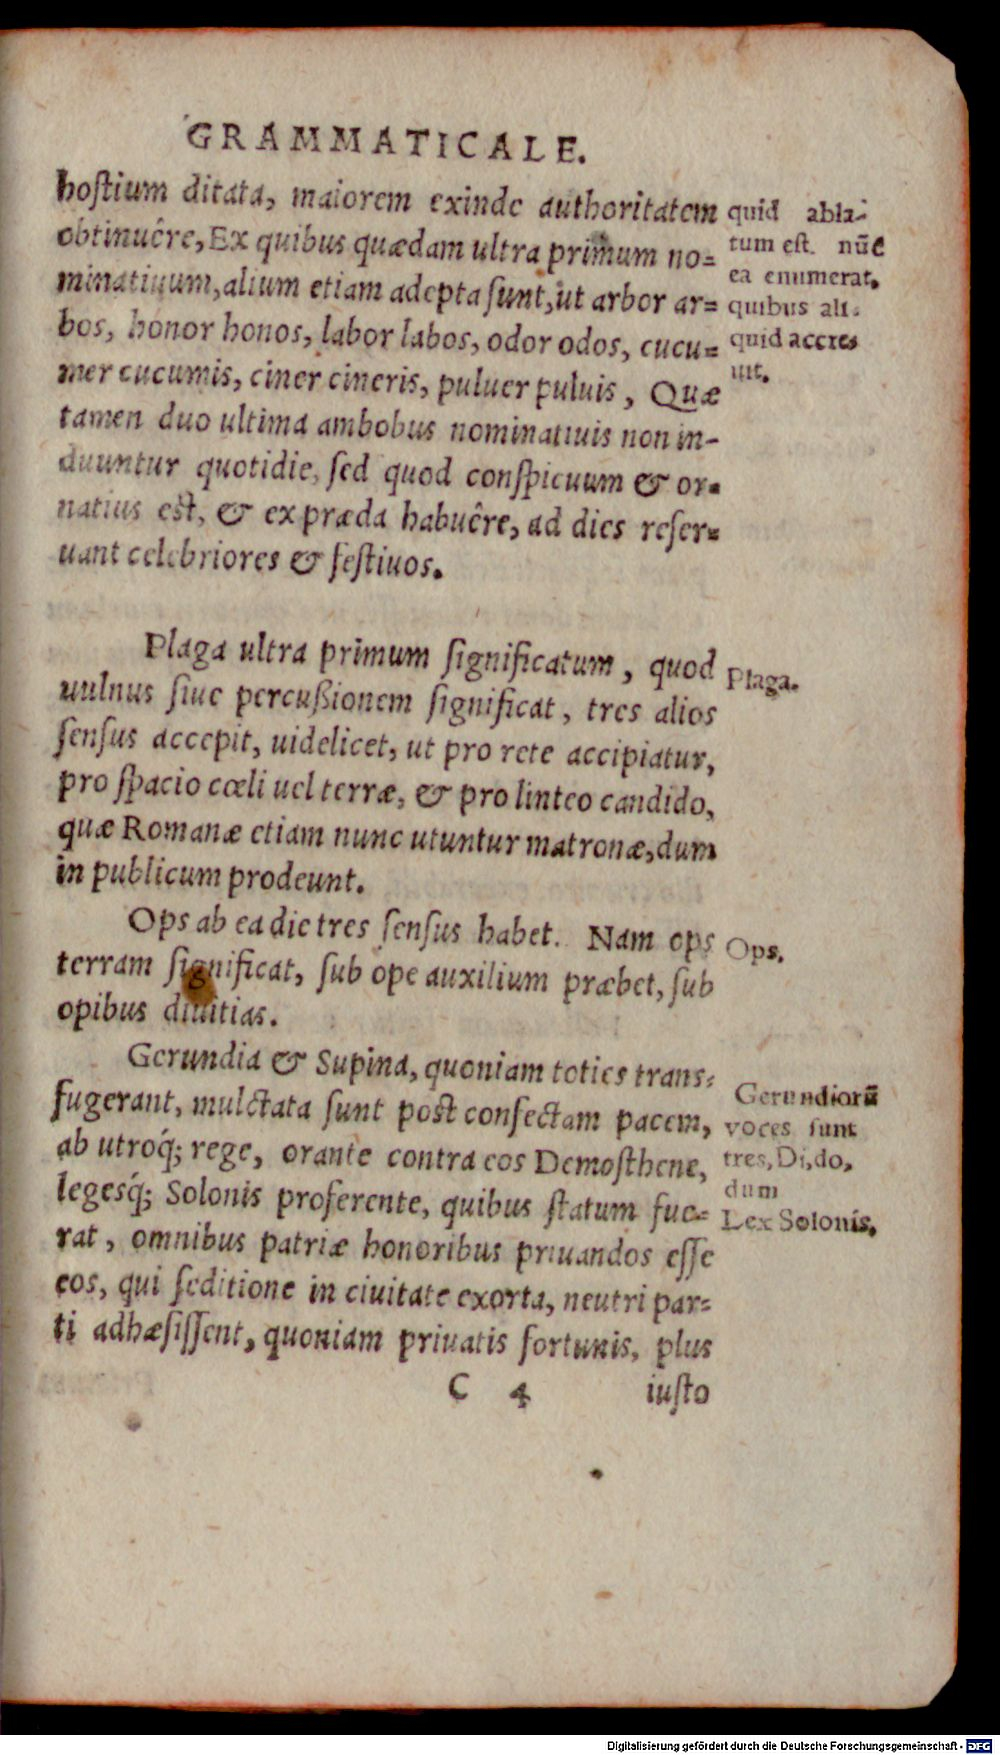 GRAMMATICALE.
hoſtium ditata, maiorem exinde authoritatem
obtinuêre, Ex quibus quædam ultra primum no=
minatiuum, alium etiam adepta ſunt, ut arbor ar=
bos, honor honos, labor labos, odor odos, cucu=
mer cucumis, ciner cineris, puluer puluis, Quæ
tamen duo ultima ambobus nominatiuis non in-
duuntur quotidie, ſed quod conſpicuum & or=
natius eſt, & ex præda habuêre, ad dies reſer=
uant celebriores & feſtiuos.
quid abla-
tum eſt. nūc
ea enumerat,
quibus ali-
quid accres
uit.
Plaga ultra primum ſignificatum, quod
uulnus ſiue percußionem ſignificat, tres alios
ſenſus accepit, uidelicet, ut pro rete accipiatur,
pro ſpacio cœli uel terræ, & pro linteo candido,
quæ Romanæ etiam nunc utuntur matronæ, dum
in publicum prodeunt.
Plaga.
Ops ab ea die tres ſenſus habet. Nam ops
terram ſignificat, ſub ope auxilium præbet, ſub
opibus diuitias.
Ops.
Gerundia & Supina, quoniam toties trans=
fugerant, mulctata ſunt poſt confectam pacem,
ab utroq́; rege, orante contra eos Demoſthene,
legesq́; Solonis proferente, quibus ſtatum fue=
rat, omnibus patriæ honoribus priuandos eſſe
eos, qui ſeditione in ciuitate exorta, neutri par=
ti adhæſiſſent, quoniam priuatis fortunis, plus
Gerundiorū
voces ſunt
tres, Di, do,
dum
Lex Solonis.
C 4 iuſto
Digitalisierung gefördert durch die Deutsche Forschungsgemeinschaft - DFG